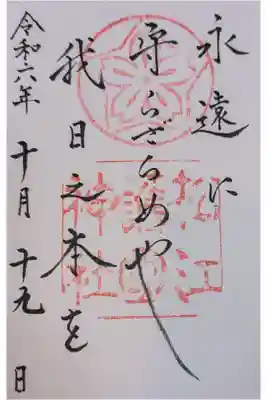 永遠に
守らざらめや
我日之本を
令和六年 十月 十九日
松江
護國
神社